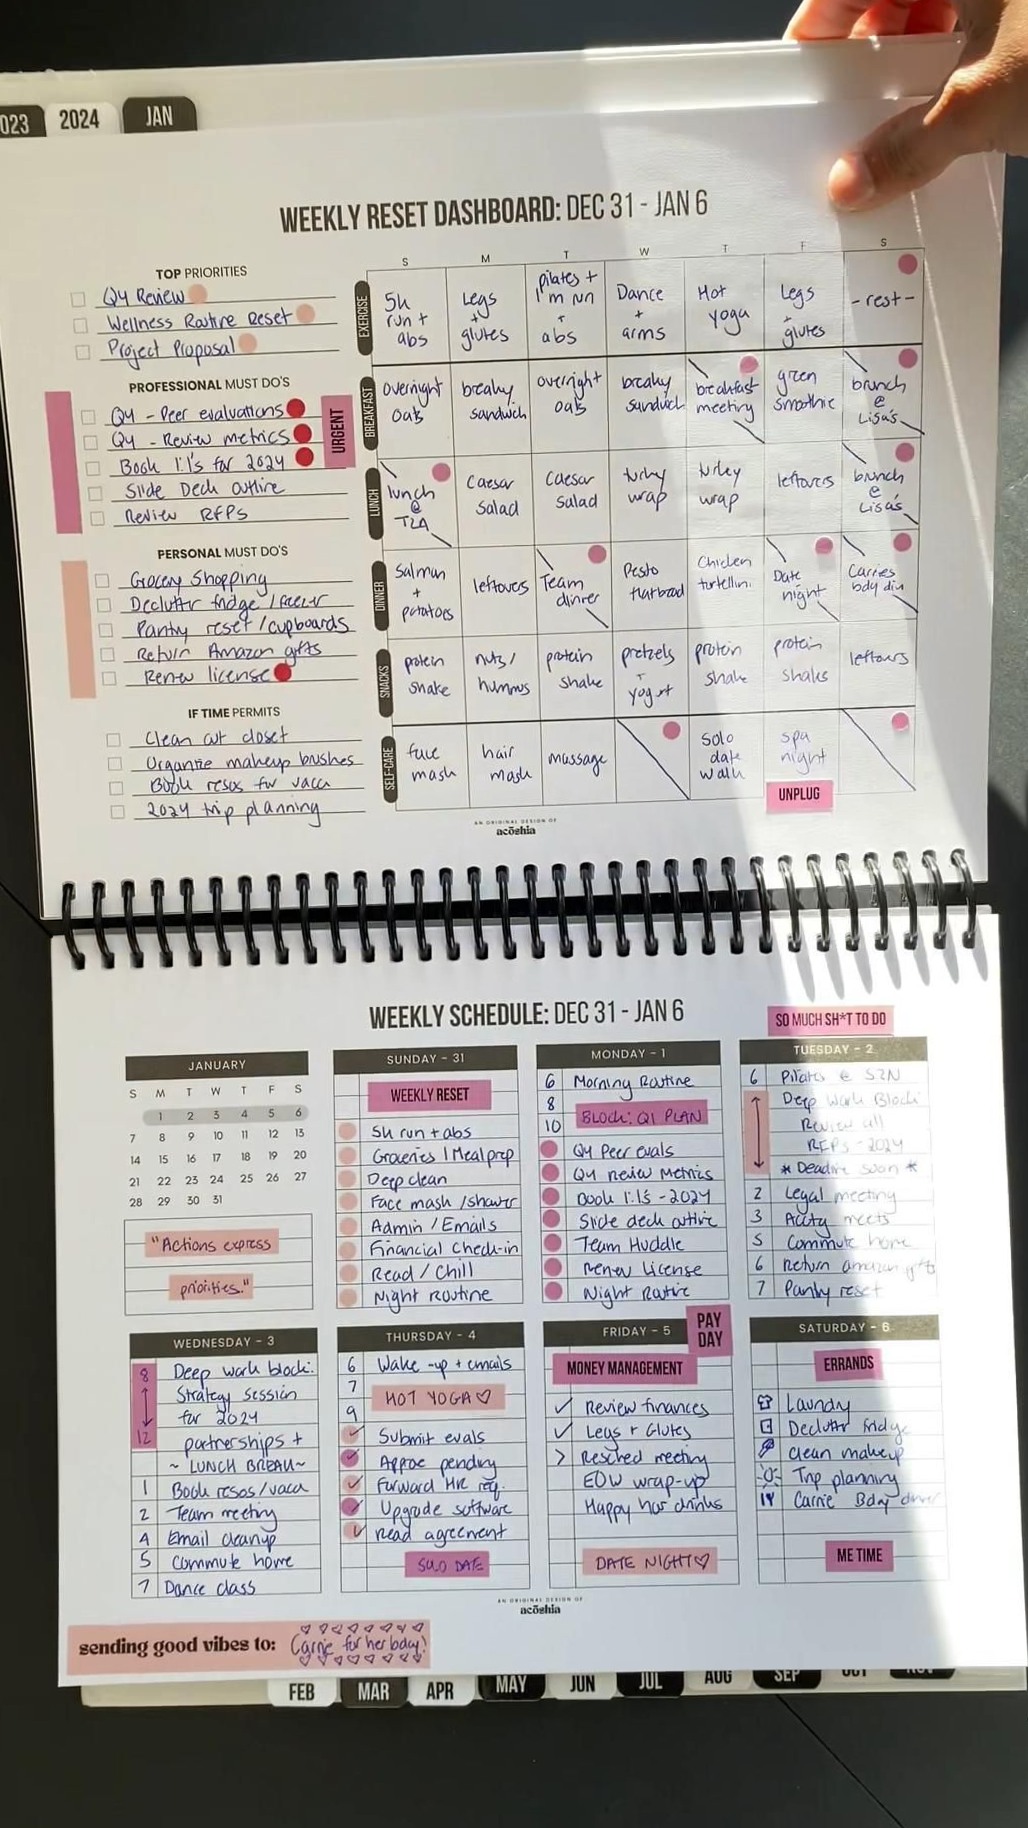 023
2024
JAN
WEEKLY RESET DASHBOARD: DEC 31 - JAN 6
TOP PRIORITIES
Q4 Review
Wellness Routine Reset
Project Proposal
PROFESSIONAL MUST DO'S
Q4 - Peer evaluations
Q4 - Review metrics
Book 1:1's for 2024
Slide Deck outline
Review RFPs
URGENT
PERSONAL MUST DO'S
Grocery Shopping
Declutter fridge /
Pantry reset/cupboards
Return Amazon gifts
Renew license
IF TIME PERMITS
Clean out closet
Organize makeup brushes
Book resos for vaca
2024 trip planning
S M T W T F S
EXERCISE
5k run + abs
Legs + glutes
pilates + 1m run + abs
Dance + arms
Hot yoga
Legs + glutes
- rest -
BREAKFAST
overnight oats
breaky sandwich
overnight oats
breaky sandwich
breakfast meeting
green smoothie
brunch @ Lisa's
LUNCH
lunch @
Caesar Salad
Caesar Salad
turkey wrap
turkey wrap
leftovers
brunch @ Lisa's
DINNER
Salmon + potatoes
leftovers
Team dinner
Pesto flatbread
Chicken tortellini
Date night
Carries bday din
SNACKS
protein shake
nuts/ hummus
protein shake
pretzels + yogurt
protein shake
protein shake
leftovers
SELF-CARE
face mask
hair mask
massage
solo date walk
spa night
UNPLUG
AN ORIGINAL DESIGN OF
acōshia
WEEKLY SCHEDULE: DEC 31 - JAN 6
SO MUCH SH*T TO DO
JANUARY
S M T W T F S
1 2 3 4 5 6
7 8 9 10 11 12 13
14 15 16 17 18 19 20
21 22 23 24 25 26 27
28 29 30 31
"Actions express
priorities."
SUNDAY - 31
WEEKLY RESET
5k run + abs
Groceries / Meal prep
Deep clean
Face mask / shower
Admin / Emails
Financial Check-in
Read / Chill
Night Routine
MONDAY - 1
6 Morning Routine
8
BLOCK: Q1 PLAN
10
Q4 Peer evals
Q4 review Metrics
Book 1:1's - 2024
Slide deck outline
Team Huddle
Renew License
Night Routine
TUESDAY - 2
6 Pilates @
Deep Work Block:
Review all
RFPs - 2024
* Deadline soon *
2 Legal meeting
3 meets
5 Commute home
6 Return amazon gifts
7 Pantry reset
WEDNESDAY - 3
8 Deep work block:
Strategy session
for 2024
12 partnerships +
~ LUNCH BREAK ~
1 Book resos/vaca
2 Team meeting
4 Email cleanup
5 Commute home
7 Dance class
THURSDAY - 4
6 Wake-up + emails
7
HOT YOGA ♡
9
Submit evals
Approve pending
Forward HR req.
Upgrade software
Read agreement
SOLO DATE
FRIDAY - 5
PAY DAY
MONEY MANAGEMENT
✓ Review finances
✓ Legs + Glutes
> Resched meeting
EOW wrap-up
Happy hour drinks
DATE NIGHT ♡
SATURDAY - 6
ERRANDS
Laundry
Declutter fridge
Clean makeup
Trip planning
Carrie Bday dinner
ME TIME
AN ORIGINAL DESIGN OF
acōshia
sending good vibes to: Carrie for her bday!
FEB
MAR
APR
MAY
JUN
JUL
AUG
SEP
OCT
NOV